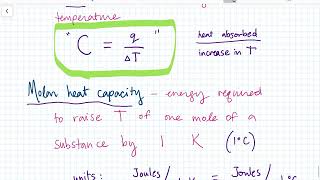 temperature
" C = q / ΔT "
heat absorbed
increase in T
Molar heat capacity - energy required
to raise T of one mole of a
substance by 1 K (1°C)
units: Joules/ = Joules/